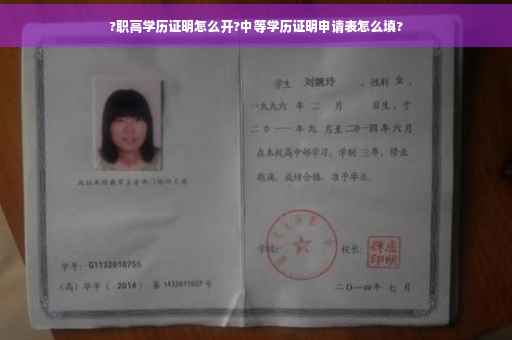 ?职高学历证明怎么开?中等学历证明申请表怎么填?
学生 刘婉玲 ,性别 女 ,
一九九六 年 二 月 日生,于
二〇一一 年 九 月至 二〇一四 年 六 月
在本校高中部学习,学制 三 年,修业
期满,成绩合格,准予毕业。
学号: G1132010755
学校:
校长:
(高)毕字( 2014 )第 1432011027 号
二〇一四 年 七 月